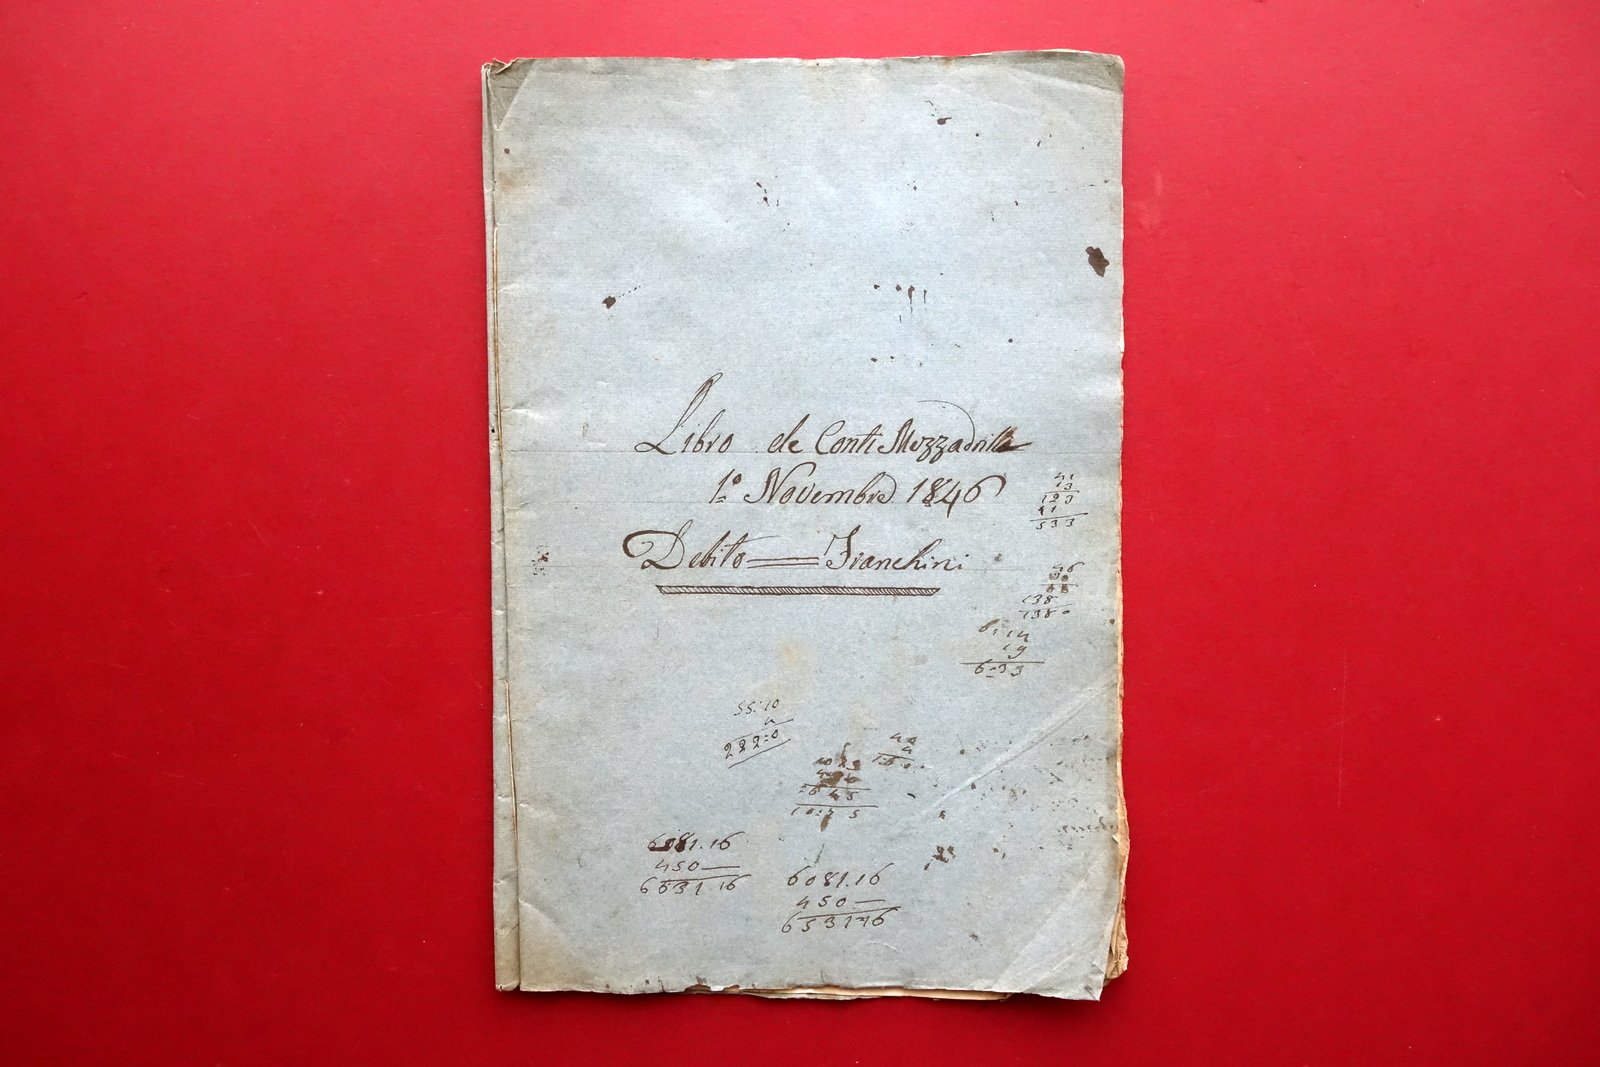 Libro de Conti Mezzadrili
1º Novembre 1846
Debito = Franchini
41
13
123
41
533
46
138
1380
19
633
55:10
4
222:0
40
4
160
6081.16
450—
6531 16
6081.16
450—
6531 16